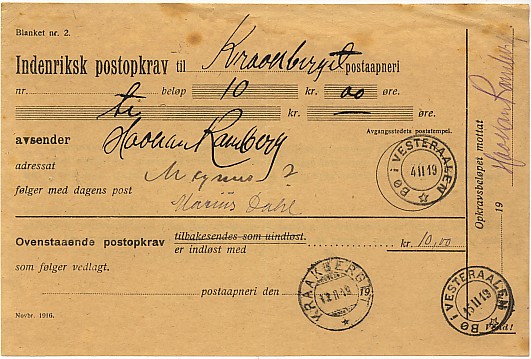 Blanket nr. 2.
Indenriksk postopkrav til Kraakberget postaapneri
nr. beløp 10 kr. 00 øre.
ti kr. øre.
Avgangsstedets poststempel.
avsender Haakan Ramberg
BØ i VESTERAALEN
4 II 19
adressat
følger med dagens post Marius Dahl
Ovenstaaende postopkrav tilbakesendes som uindløst. er indløst med kr. 10,00
som følger vedlagt.
postaapneri den 19
KRAAKBERGET
12.II.19
Novbr. 1916.
Opkrævsbeløpet mottat
19
Haakan Ramberg
BØ i VESTERAALEN
15 II 19